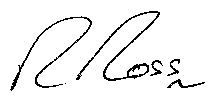 R Ross